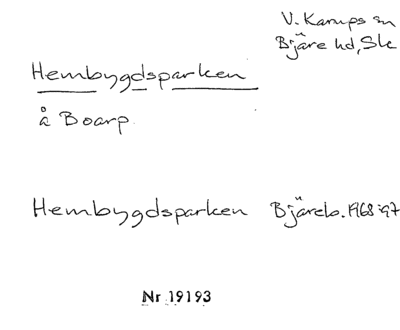 V. Karups sn
Bjäre hd, Sk
Hembygdsparken
å Boarp.
Hembygdsparken Bjärebo. 1968:97
Nr 19193